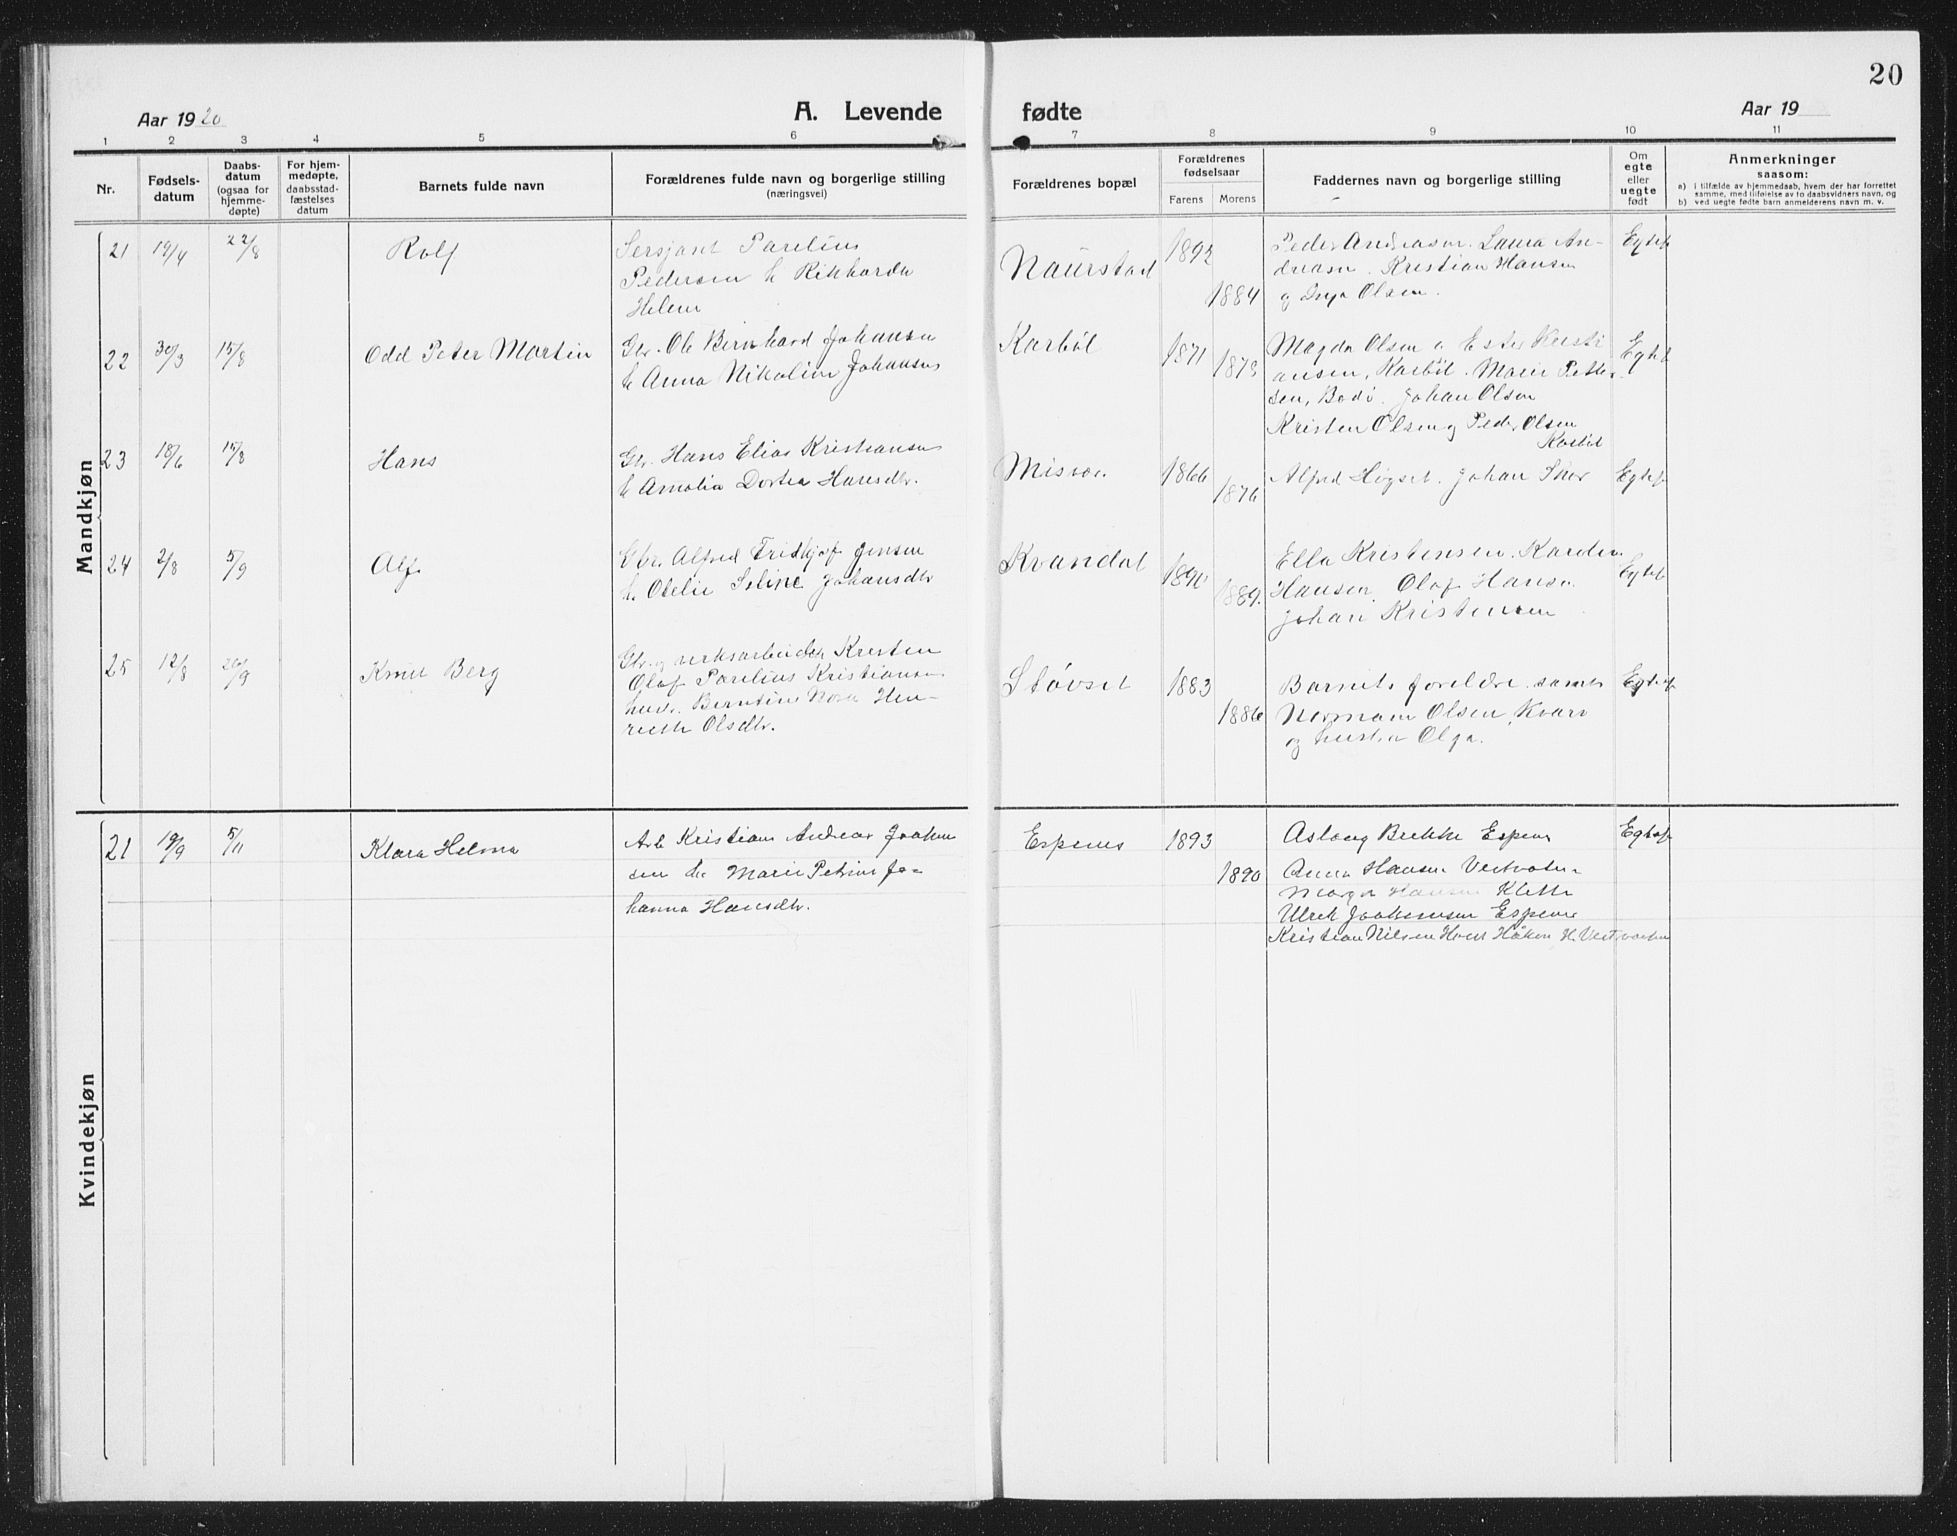 20
Aar 1920
A. Levende
fødte
Aar 19
1 2 3 4 5 6 7 8 9 10 11
Nr.
Fødsels-
datum
Daabs-
datum
(ogsaa for
hjemme-
døpte)
For hjem-
medøpte,
daabsstad-
fæstelses
datum
Barnets fulde navn
Forældrenes fulde navn og borgerlige stilling
(næringsvei)
Forældrenes bopæl
Forældrenes
fødselsaar
Farens Morens
Faddernes navn og borgerlige stilling
Om
egte
eller
uegte
født
Anmerkninger
saasom:
a) i tilfælde av hjemmedaab, hvem der har forrettet
samme, med tilføielse av to daabsvidners navn, og
b) ved uegte fødte barn anmelderens navn m. v.
Mandkjøn
21 19/4 22/8 Rolf
Sersjant Parelius
Pedersen h. Rikharda
Helene
Naurstad 1892 1884
Peder Andreasen. Laura An-
dreasn. Kristian Hansen
og Inga Olsen.
Egtef
22 30/3 15/8 Odd Peter Martin
Gbr. Ole Bernhard Johansen
h. Anna Nikoline Johansen
Karbøl 1871 1873
Magda Olsen o Ester Kristi
ansen, Karbøl. Marie Petter
sen, Bodø. Johan Olsen
Kristen Olsen og Peder Olsen
Karbøl
Egtef
23 18/6 15/8 Hans
Gbr. Hans Elias Kristiansen
h. Amalia Dortea Hansdtr.
Misvær 1866 1876
Alfred Høgset. Johan
Egtef
24 2/8 5/9 Alf
Gbr. Alfred Fridtjof Jensen
h. Otelie Seline Johansdtr
Kvandal 1890 1889.
Ella Kristensen.
Hansen. Olaf Hansen
Johan Kristensen
Egtef
25 12/8 26/9 Knut Berg
Gbr. og verksarbeider Kristen
Olaf Parelius Kristiansen
hustr. Berntine Nora Hen-
riette Olsdtr.
Støvset 1883 1886
Barnets foreldre samt
Normann Olsen, Kvarv
og hustru Olga.
Egtef
Kvindekjøn
21 19/9 5/11 Klara Helma
Arb Kristian Andreas Joakim
sen h. Marie Petrine Jo-
hanna Hansdtr.
Espenes 1893 1890
Aslaug Brekke Espenes
Anna Hansen Vestvatn
Margit Hansen Klette
Ulrik Joakimsen Espenes
Kristian Nilsen Håkon H. Vestvatn
Egtef